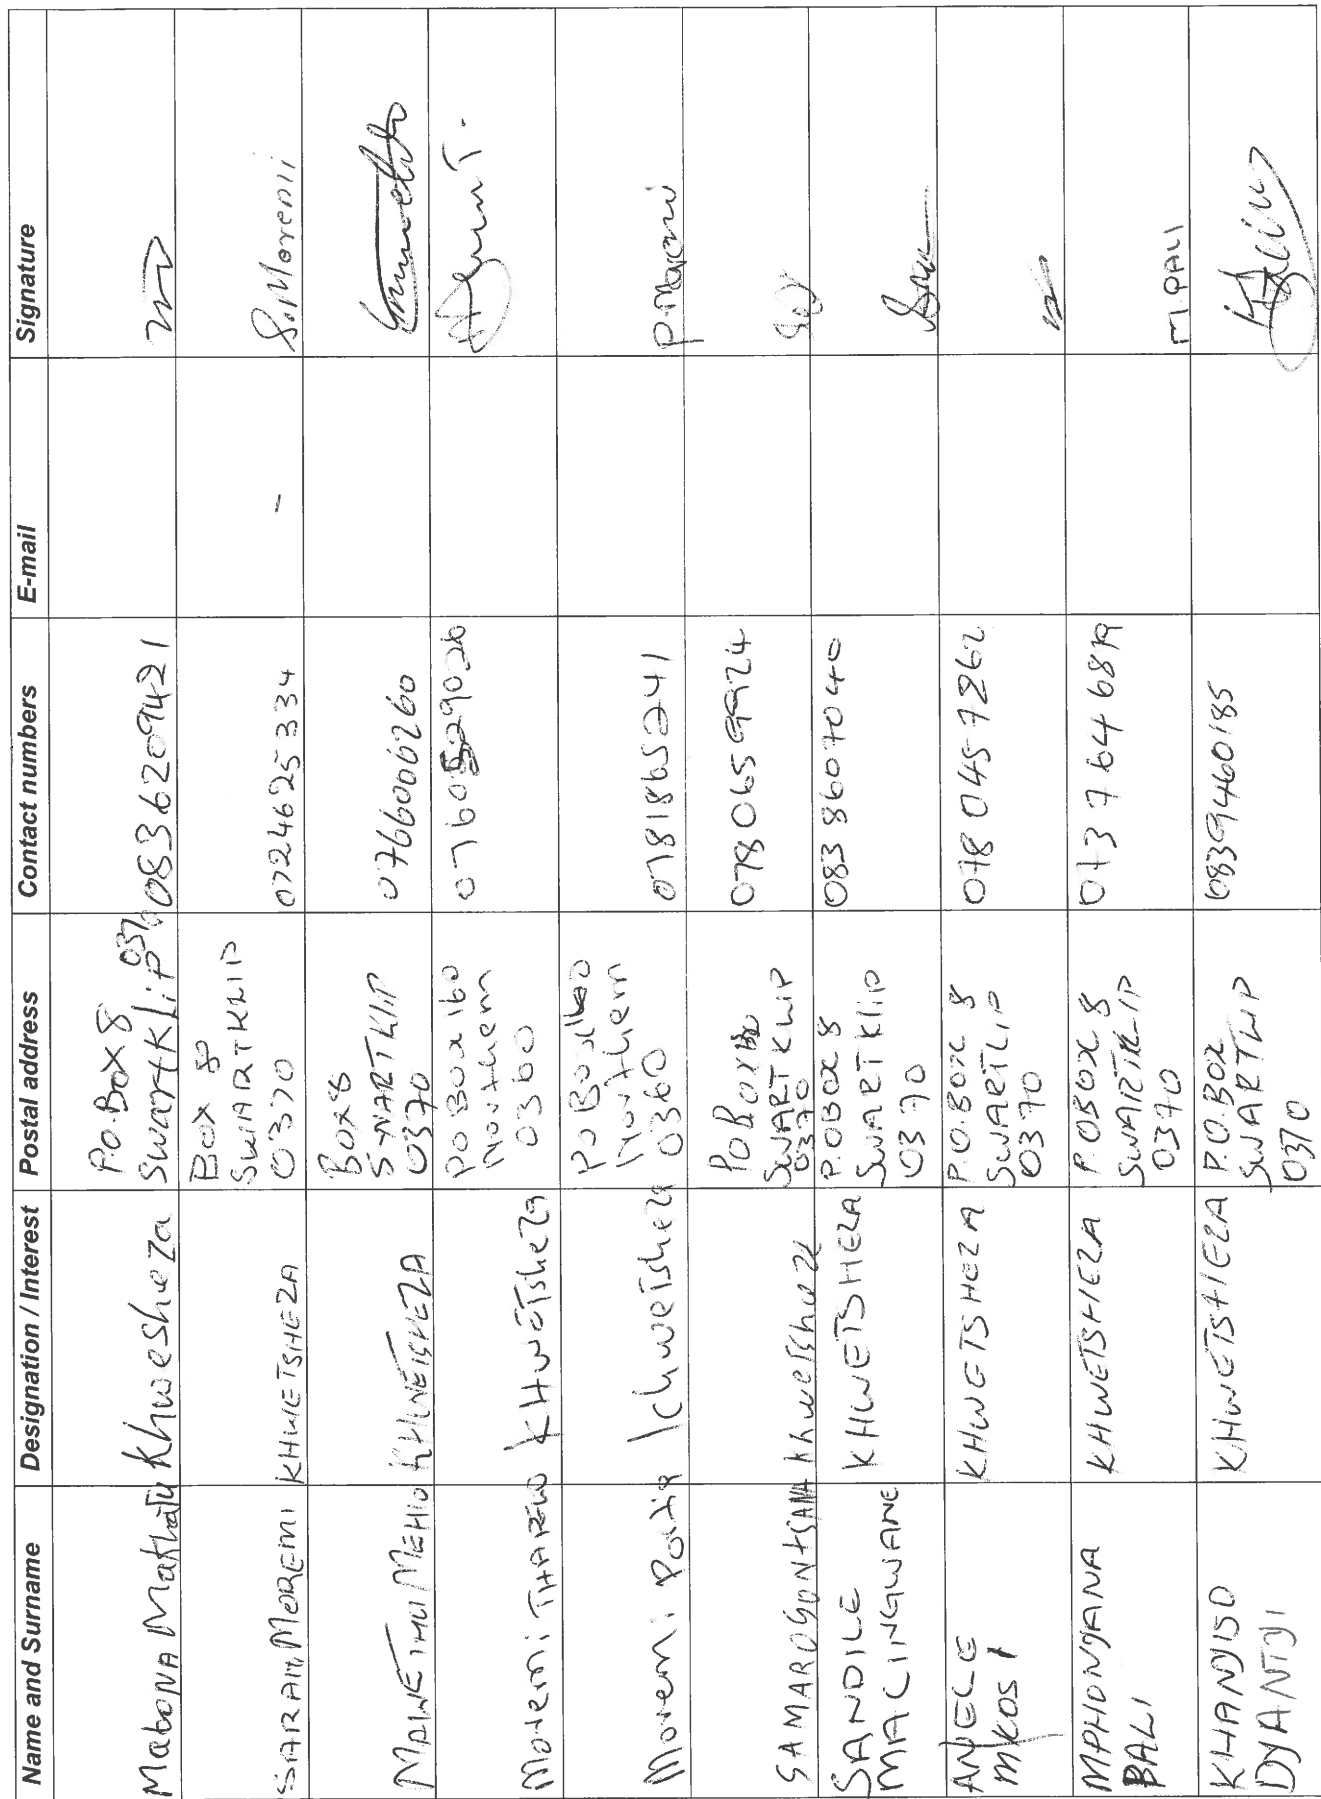 Name and Surname Designation / Interest Postal address Contact numbers E-mail Signature
Matona Khwesheza P.O. Box 8
Swartklip 0370 0836209421
SARAH MOREMI KHWETSHEZA Box 8
SWARTKLIP
0370 0724625334 - S. Moremi
KHWETSHEZA BOX 8
SWARTKLIP
0370 0766006260
Moremi THABO KHWETSheza PO Box 160
Northem
0360
Moremi Khwetsheza PO Box
Northem
0360 0781865241
PO Box
SWARTKLIP
0370 0780659924
SANDILE
MACLINGWANE KHWETSHEZA P.O BOX 8
SWARTKliP
0370 0838607040
ANELE
MKOSI KHWETSHEZA P.O. BOX 8
SWARTLIP
0370 0780457262
MPHONJANA
BALI KHWETSHEZA P.O BOX 8
SWARTKLIP
0370 M. BALI
KHANJISO
DYANTYI KHWETSHEZA P.O. BOX
SWARTLIP
0370 0839460185